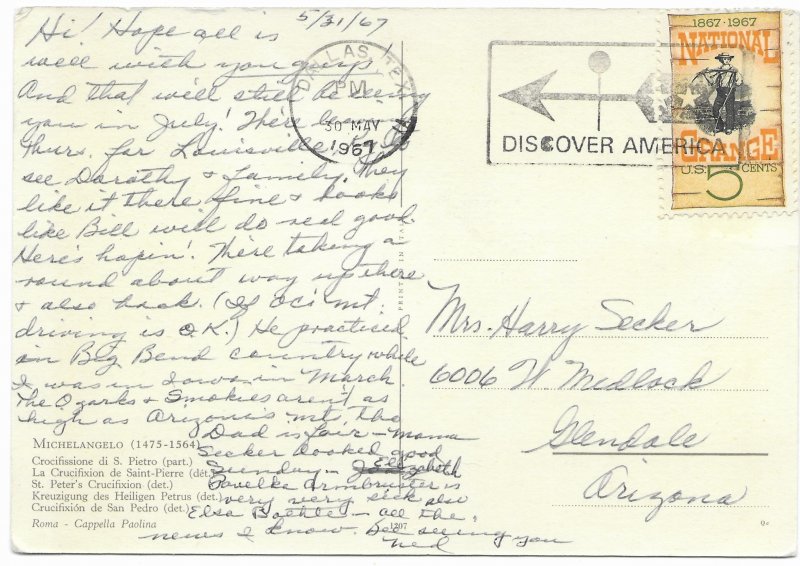 5/31/67
Hi! Hope all is
well with you guys
And that will still be seeing
you in July! There leaving
Thurs. for Louisville, Ky to
see Dorothy & family. They
like it there fine & looks
like Bill will do real good
Here's hopin'. There taking a
round about way up there
& also back. (If Oci mt.
driving is O.K.) He practised
in Big Bend country while
I was in Iowa in March.
The Ozarks & Smokies aren't as
high as Arizonis mt, tho
Dad is fair - Mama
Secker looked good
Sunday - Elizabeth
Pavelka Armbruster is
very very sick also
Elsa Boehle - all the
news I know. Bee seeing you
Ned
MICHELANGELO (1475-1564)
Crocifissione di S. Pietro (part.)
La Crucifixion de Saint-Pierre (dét.)
St. Peter's Crucifixion (det.)
Kreuzigung des Heiligen Petrus (det.)
Crucifixión de San Pedro (det.)
Roma - Cappella Paolina
1207
PRINTED IN ITALY
DALLAS, TEX
PM
30 MAY
1967
DISCOVER AMERICA
1867·1967
NATIONAL
GRANGE
U.S. 5 CENTS
Mrs. Harry Secker
6006 W Medlock
Glendale
Arizona